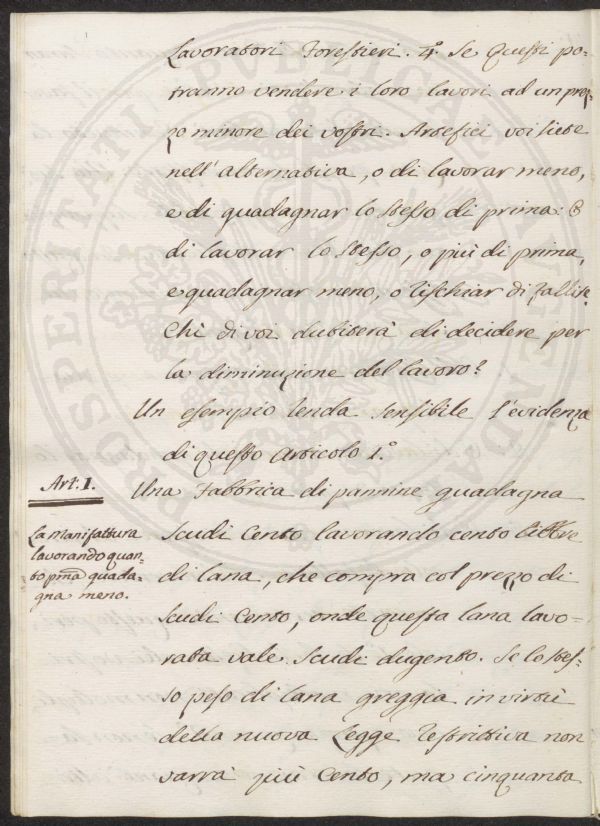 Lavoratori Forestieri. 4.° Se questi po-
tranno vendere i loro lavori ad un prez-
zo minore dei vostri. Artefici voi siete
nell' alternativa, o di lavorar meno,
e di guadagnar lo stesso di prima: O
di lavorar lo stesso, o più di prima,
e guadagnar meno, o rischiar di fallire.
Chi di voi dubiterà di decidere per
la diminuzione del lavoro?
Un esempio renda sensibile l'evidenza
di questo Articolo 1.°
Art. 1.
Una Fabbrica di pannine guadagna
La manifattura
lavorando quan-
to pma guada-
gna meno.
Scudi Cento lavorando cento libbre
di lana, che compra col prezzo di
Scudi Cento, onde questa lana lavo-
rata vale Scudi dugento. Se lo stes-
so peso di lana greggia in virtù
della nuova Legge restrittiva non
varrà più Cento, ma cinquanta
PROSPERITATI PUBLICAE AUGENDAE